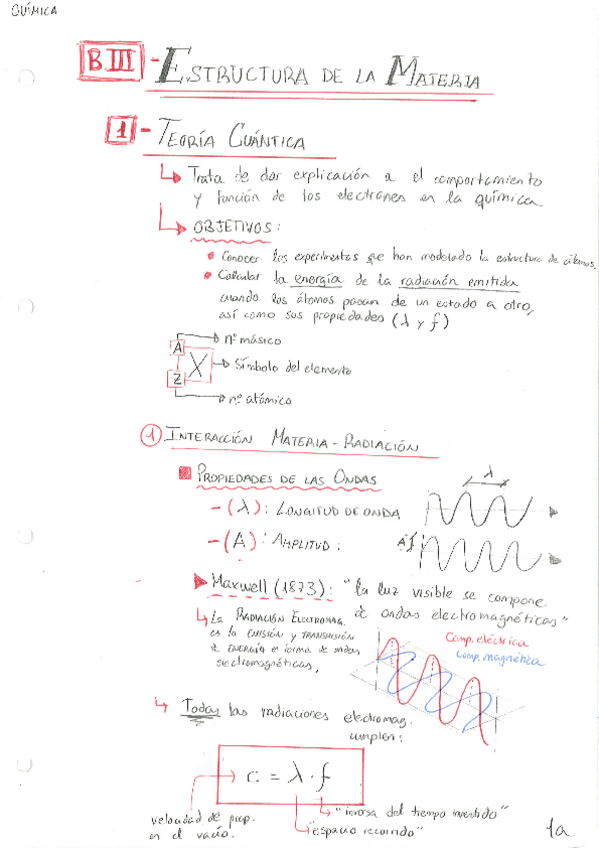 QUÍMICA
BIII - ESTRUCTURA DE LA MATERIA
1 - TEORÍA CUÁNTICA
Trata de dar explicación a el comportamiento
y función de los electrones en la química.
OBJETIVOS:
Conocer los experimentos que han modelado la estructura de átomos.
Calcular la energía de la radiación emitida
cuando los átomos pasan de un estado a otro,
así como sus propiedades (λ y f)
A → nº másico
X → Símbolo del elemento
Z → nº atómico
1 INTERACCIÓN MATERIA-RADIACIÓN
PROPIEDADES DE LAS ONDAS
λ
- (λ): LONGITUD DE ONDA
- (A): AMPLITUD:
A
Maxwell (1873): "la luz visible se compone
de ondas electromagnéticas"
La RADIACIÓN ELECTROMAG.
es la EMISIÓN y TRANSMISIÓN
de ENERGÍA en forma de ondas
electromagnéticas.
Comp. eléctrica
Comp. magnética
Todas las radiaciones electromag.
cumplen:
c = λ · f
"inversa del tiempo invertido"
velocidad de prop.
en el vacío.
"espacio recorrido"
1a